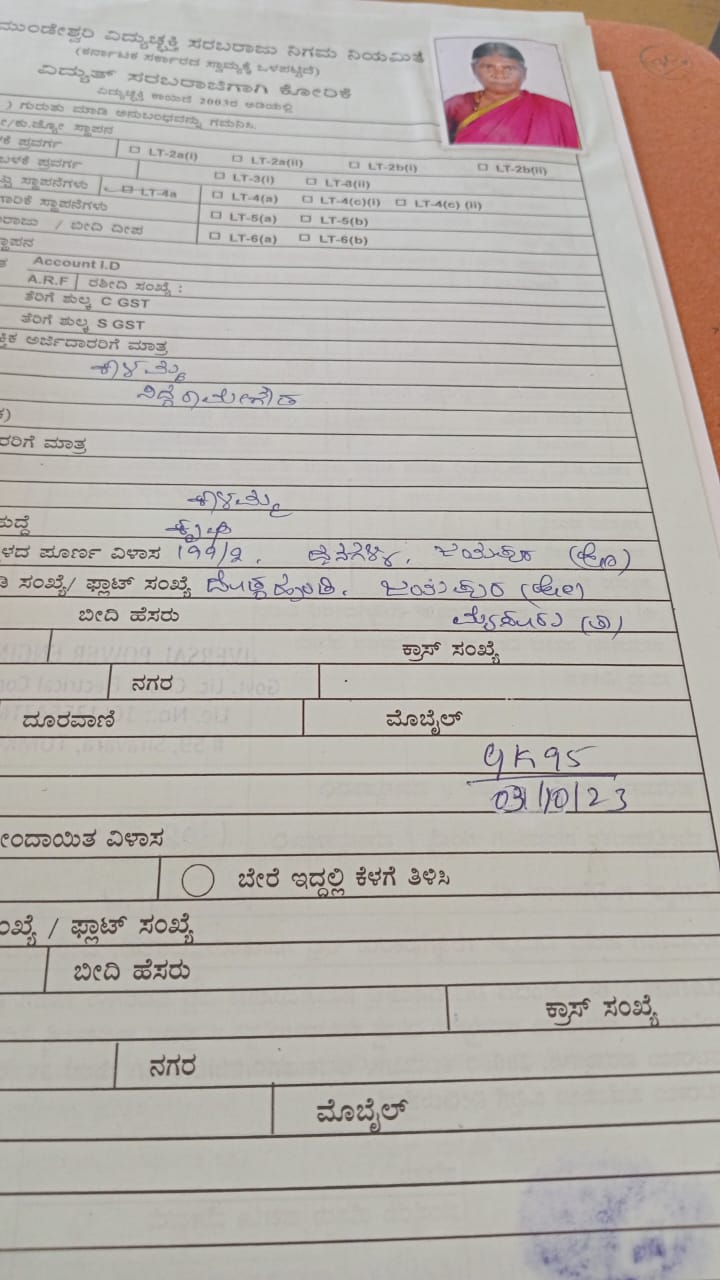 ಮುಂಡೇಶ್ವರಿ ವಿದ್ಯುಚ್ಛಕ್ತಿ ಸರಬರಾಜು ನಿಗಮ ನಿಯಮಿತ
(ಕರ್ನಾಟಕ ಸರ್ಕಾರದ ಸ್ವಾಮ್ಯಕ್ಕೆ ಒಳಪಟ್ಟಿದೆ)
ವಿದ್ಯುತ್ ಸರಬರಾಜಿಗಾಗಿ ಕೋರಿಕೆ
ವಿದ್ಯುಚ್ಛಕ್ತಿ ಕಾಯಿದೆ 2003ರ ಅಡಿಯಲ್ಲಿ
) ಗುರುತು ಮಾಡಿ ಅನುಬಂಧವನ್ನು ಗಮನಿಸಿ.
ಸ್ಥಾಪನ
ಪ್ರವರ್ಗ □ LT-2a(i) □ LT-2a(ii) □ LT-2b(i) □ LT-2b(ii)
ಬಳಕೆ ಪ್ರವರ್ಗ □ LT-3(i) □ LT-3(ii)
ಸ್ಥಾಪನೆಗಳು □ LT-4a □ LT-4(a) □ LT-4(c)(i) □ LT-4(c) (ii)
ಗಾರಿಕೆ ಸ್ಥಾಪನೆಗಳು □ LT-5(a) □ LT-5(b)
ರಾಜು / ಬೀದಿ ದೀಪ □ LT-6(a) □ LT-6(b)
ಸ್ಥಾಪನ
Account I.D
A.R.F ರಶೀದಿ ಸಂಖ್ಯೆ :
ತೆರಿಗೆ ಶುಲ್ಕ C GST
ತೆರಿಗೆ ಶುಲ್ಕ S GST
ಕ್ತಿಕ ಅರ್ಜಿದಾರರಿಗೆ ಮಾತ್ರ
ಕಾಳಮ್ಮ
ಸಿದ್ದೆರಾಮೇಗೌಡ
ರರಿಗೆ ಮಾತ್ರ
ಕಾಳಮ್ಮ
ಹುದ್ದೆ ಕೃಷಿ
ಳದ ಪೂರ್ಣ ವಿಳಾಸ 199/2, ಜಯಪುರ (ಹೋ)
ಸಂಖ್ಯೆ/ ಫ್ಲಾಟ್ ಸಂಖ್ಯೆ ಜಯಪುರ (ಹೋ)
ಬೀದಿ ಹೆಸರು ಮೈಸೂರು (ತಾ)
ಕ್ರಾಸ್ ಸಂಖ್ಯೆ
ನಗರ
ದೂರವಾಣಿ ಮೊಬೈಲ್
03/10/23
ೋಂದಾಯಿತ ವಿಳಾಸ
ಬೇರೆ ಇದ್ದಲ್ಲಿ ಕೆಳಗೆ ತಿಳಿಸಿ
ಂಖ್ಯೆ / ಫ್ಲಾಟ್ ಸಂಖ್ಯೆ
ಬೀದಿ ಹೆಸರು
ಕ್ರಾಸ್ ಸಂಖ್ಯೆ
ನಗರ
ಮೊಬೈಲ್